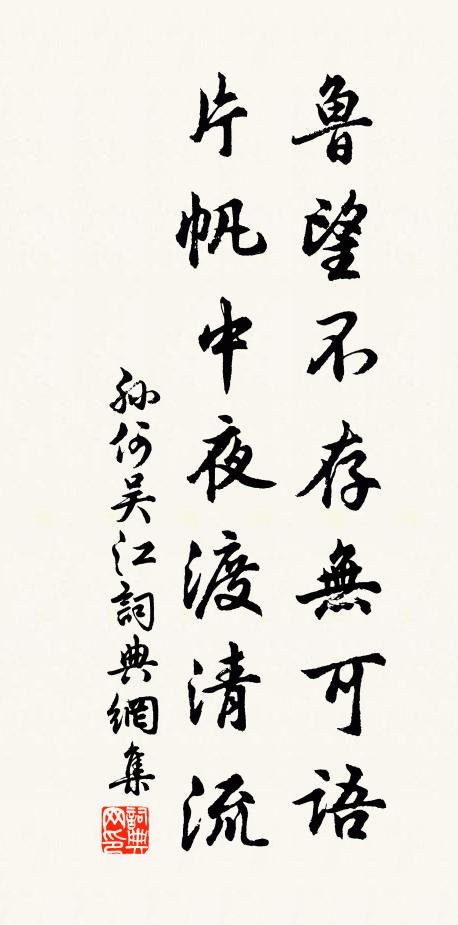 魯望不存無可語
片帆中夜渡清流
孫何吴江詞典網集
詞典网印